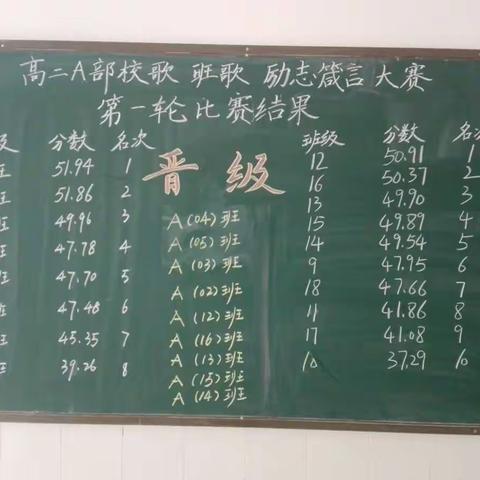 高二A部校歌 班歌 励志箴言大赛
第一轮比赛结果
级 分数 名次
班 51.94 1
班 51.86 2
班 49.96 3
班 47.78 4
班 47.70 5
班 47.48 6
班 45.35 7
班 39.26 8
晋级
A(04)班
A(05)班
A(03)班
A(02)班
A(12)班
A(16)班
A(13)班
A(15)班
A(14)班
班级 分数 名次
12 50.91 1
16 50.37 2
13 49.90 3
15 49.89 4
14 49.54 5
9 47.95 6
18 47.66 7
11 41.86 8
17 41.08 9
10 37.29 10